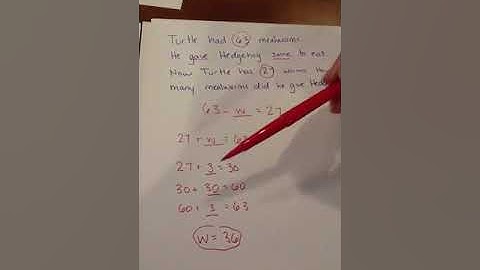 Turtle had 63 mealworms.
He gave Hedgehog some to eat.
Now Turtle has 27 worms. How
many mealworms did he give
63 - w = 27
27 + w = 63
27 + 3 = 30
30 + 30 = 60
60 + 3 = 63
w = 36